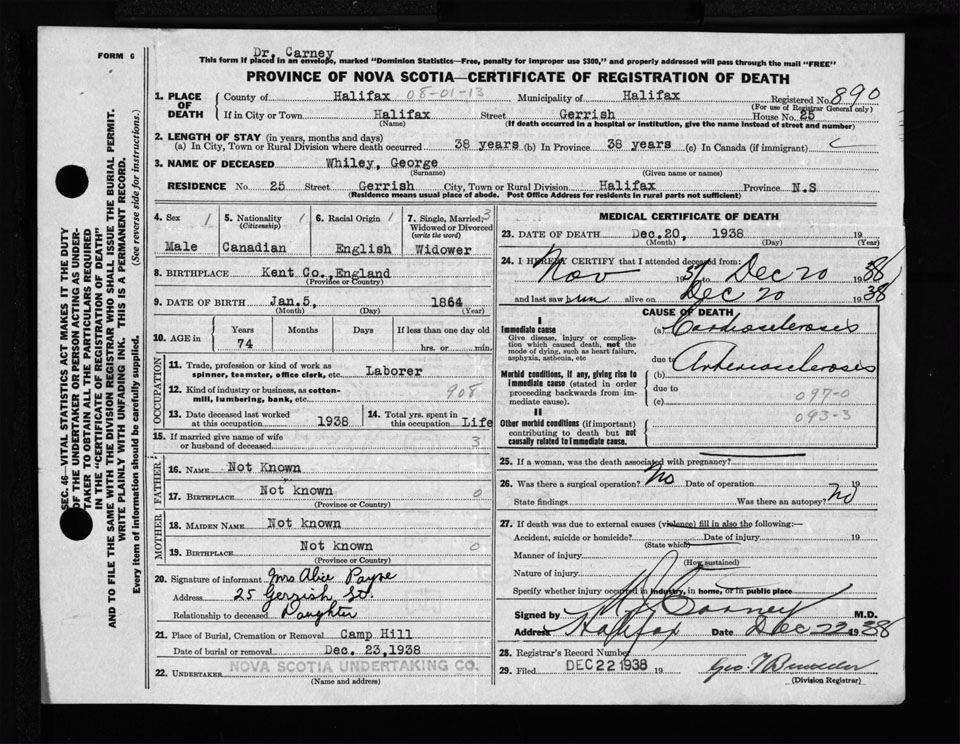 FORM 6
Dr. Carney
This form if placed in an envelope, marked "Dominion Statistics—Free, penalty for improper use $300," and properly addressed will pass through the mail "FREE"
PROVINCE OF NOVA SCOTIA—CERTIFICATE OF REGISTRATION OF DEATH
1. PLACE OF DEATH
County of Halifax 08-01-13 Municipality of Halifax Registered No. 890
(For use of Registrar General only)
If in City or Town Halifax Street Gerrish House No. 25
(Name) (If death occurred in a hospital or institution, give the name instead of street and number)
2. LENGTH OF STAY (in years, months and days)
(a) In City, Town or Rural Division where death occurred 38 years (b) In Province 38 years (c) In Canada (if immigrant)
3. NAME OF DECEASED Whiley, George
(Surname) (Given name or names)
RESIDENCE No. 25 Street Gerrish City, Town or Rural Division Halifax Province N.S
(Residence means usual place of abode. Post Office Address for residents in rural parts not sufficient)
4. Sex 1
Male
5. Nationality 1
(Citizenship)
Canadian
6. Racial Origin 1
English
7. Single, Married, 3
Widowed or Divorced
(write the word)
Widower
8. BIRTHPLACE Kent Co., England
(Province or Country)
9. DATE OF BIRTH Jan.5, 1864
(Month) (Day) (Year)
10. AGE in
Years Months Days If less than one day old
74 hrs. or min.
OCCUPATION
11. Trade, profession or kind of work as
spinner, teamster, office clerk, etc. Laborer
12. Kind of industry or business, as cotton-
mill, lumbering, bank, etc. 908
13. Date deceased last worked
at this occupation 1938
14. Total yrs. spent in
this occupation Life
15. If married give name of wife
or husband of deceased 3
FATHER
16. NAME Not Known
17. BIRTHPLACE Not known 0
(Province or Country)
MOTHER
18. MAIDEN NAME Not known
19. BIRTHPLACE Not known 0
(Province or Country)
20. Signature of informant Mrs Alice Payne
Address 25 Gerrish St.
Relationship to deceased Daughter
21. Place of Burial, Cremation or Removal Camp Hill
Date of burial or removal Dec. 23,1938
22. UNDERTAKER NOVA SCOTIA UNDERTAKING CO.
(Name and address)
MEDICAL CERTIFICATE OF DEATH
23. DATE OF DEATH Dec.20, 1938 19
(Month) (Day) (Year)
24. I HEREBY CERTIFY that I attended deceased from:
Nov 1937 to Dec 20 1938
and last saw him alive on Dec 20 1938
CAUSE OF DEATH
I
Immediate cause
Give disease, injury or complica-
tion which caused death, not the
mode of dying, such as heart failure,
asphyxia, asthenia, etc
(a) Cardiosclerosis
due to
Morbid conditions, if any, giving rise to
immediate cause (stated in order
proceeding backwards from im-
mediate cause).
(b) Arteriosclerosis
due to
(c) 097-0
093-3
II
Other morbid conditions (if important)
contributing to death but not
causally related to immediate cause.
25. If a woman, was the death associated with pregnancy?
26. Was there a surgical operation? No Date of operation 19
State findings Was there an autopsy? No
27. If death was due to external causes (violence) fill in also the following:—
Accident, suicide or homicide? Date of injury 19
(State which)
Manner of injury
(How sustained)
Nature of injury
Specify whether injury occurred in industry, in home, or in public place
Signed by Carney M.D.
Address Halifax Date Dec 22 1938
28. Registrar's Record Number
29. Filed DEC 22 1938 19
(Division Registrar)
SEC. 46—VITAL STATISTICS ACT MAKES IT THE DUTY
OF THE UNDERTAKER OR PERSON ACTING AS UNDER-
TAKER TO OBTAIN ALL THE PARTICULARS REQUIRED
IN THE "CERTIFICATE OF REGISTRATION OF DEATH"
AND TO FILE THE SAME WITH THE DIVISION REGISTRAR WHO SHALL ISSUE THE BURIAL PERMIT.
WRITE PLAINLY WITH UNFADING INK. THIS IS A PERMANENT RECORD.
Every item of information should be carefully supplied. (See reverse side for instructions.)